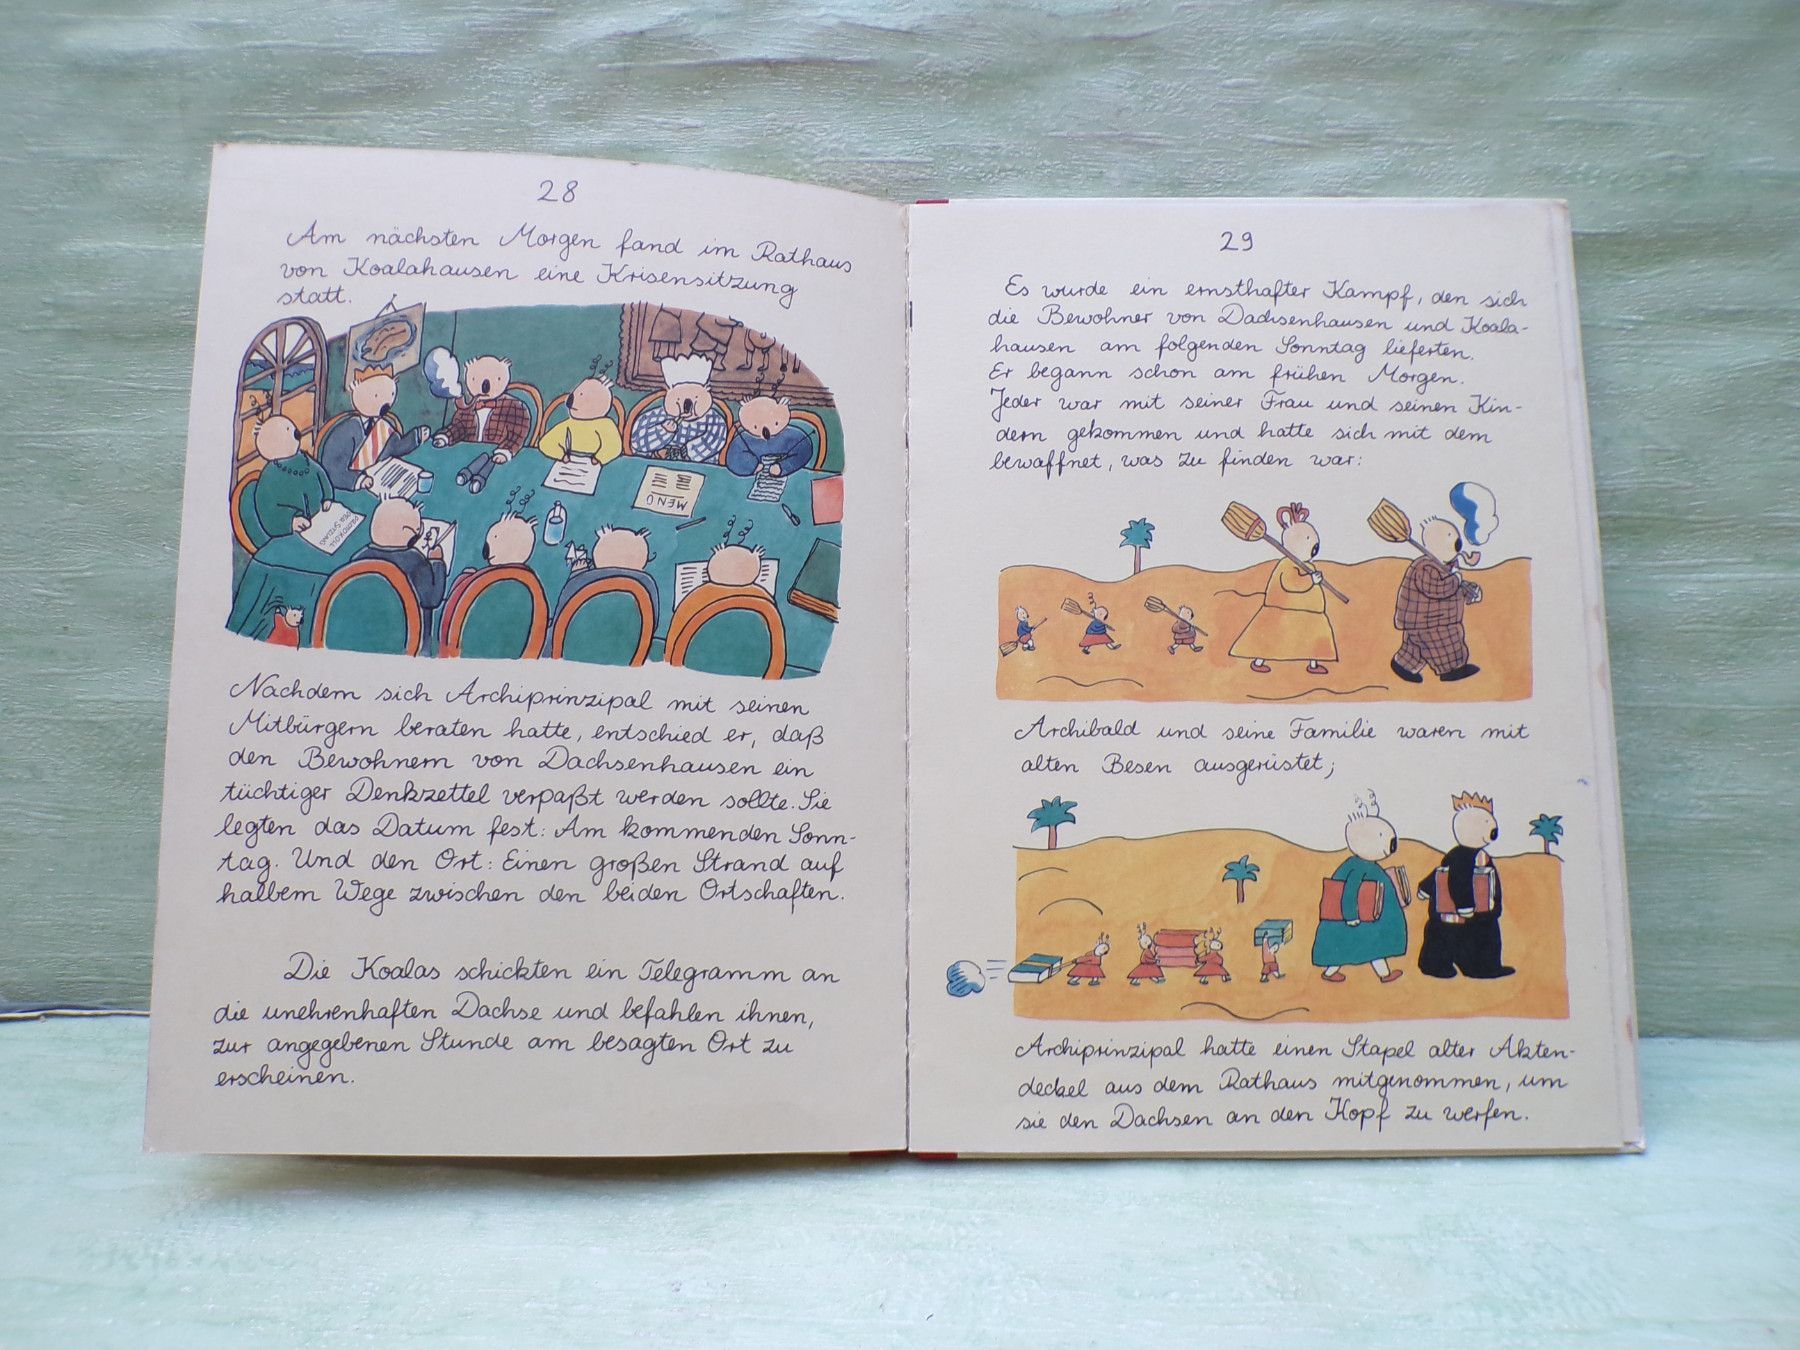 28
Am nächsten Morgen fand im Rathaus
von Koalahausen eine Krisensitzung
statt.
MENÜ
PROTOKOLL
DER SITZUNG
Nachdem sich Archiprinzipal mit seinen
Mitbürgern beraten hatte, entschied er, daß
den Bewohnern von Dachsenhausen ein
tüchtiger Denkzettel verpaßt werden sollte. Sie
legten das Datum fest: Am kommenden Sonn-
tag. Und den Ort: Einen großen Strand auf
halbem Wege zwischen den beiden Ortschaften.
Die Koalas schickten ein Telegramm an
die unehrenhaften Dachse und befahlen ihnen,
zur angegebenen Stunde am besagten Ort zu
erscheinen.
29
Es wurde ein ernsthafter Kampf, den sich
die Bewohner von Dachsenhausen und Koala-
hausen am folgenden Sonntag lieferten.
Er begann schon am frühen Morgen.
Jeder war mit seiner Frau und seinen Kin-
dern gekommen und hatte sich mit dem
bewaffnet, was zu finden war:
Archibald und seine Familie waren mit
alten Besen ausgerüstet;
Archiprinzipal hatte einen Stapel alter Akten-
deckel aus dem Rathaus mitgenommen, um
sie den Dachsen an den Kopf zu werfen.